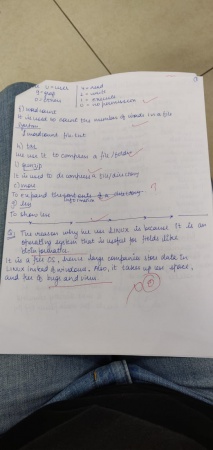 u = user | 4 = read
g = group | 2 = write
o = others | 1 = execute
0 = no permission
f) wordcount
It is used to count the number of words in a file
Syntax
$ wordcount file.txt
h) tar
We use it to compress a file/folder
i) gunzip
It is used to de compress a file/directory
To expand the
information
To show
Q) The reason why we use Linux is because It is an
operating system that is useful for fields like
It is a free OS, hence large companies store data in
Linux instead of windows. Also, it takes up less space,
and free of bugs and virus